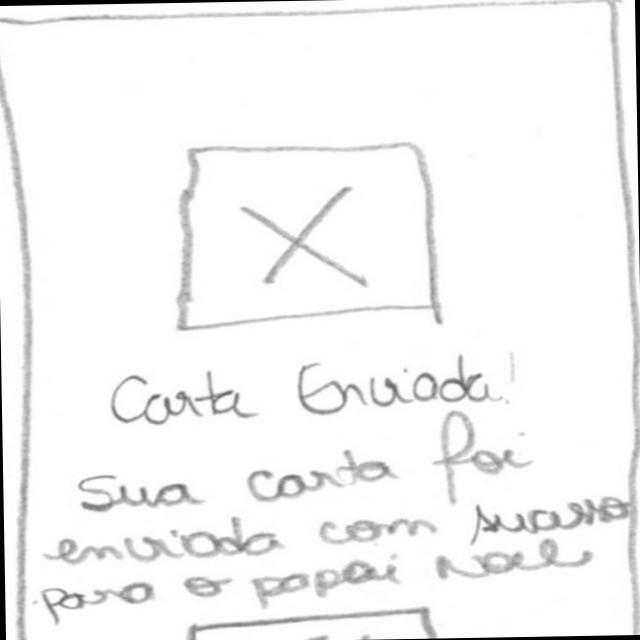 Carta Enviada!
Sua carta foi
enviada com sucesso
para o papai Noel